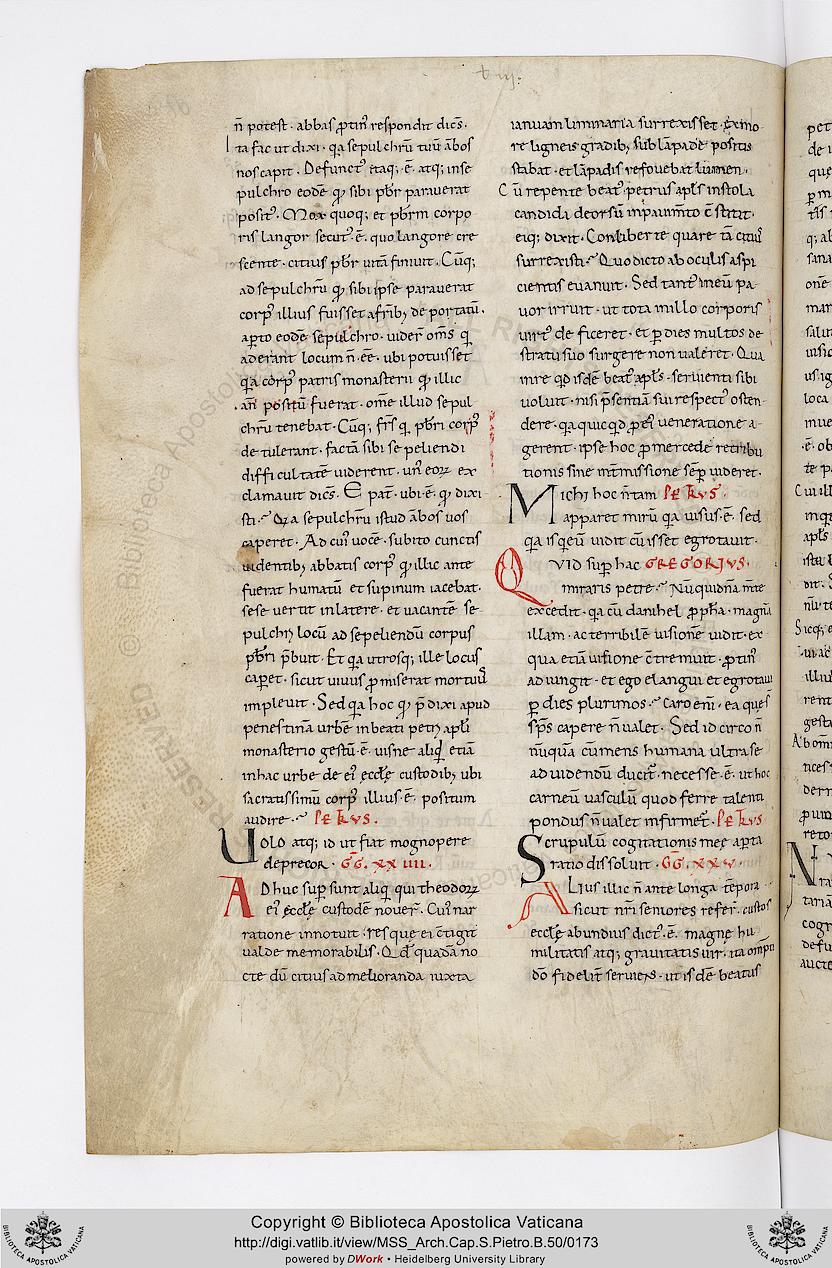 n̄ potest · abbas ꝓtin᾽ respondit dic̄s ·
Ita fac ut dixi · q̄a sepulchrū tuū ābos
nos capit · Defunct᾽ itaq; · ē · atq; in se
pulchro eodē qđ sibi pb̄r paraverat
posit᾽ · Mox quoq; et pb̄rm corpo
ris langor secut᾽ · ē · quo langore cre
scente · citius pb̄r vitā finivit · Cūq;
ad sepulchrū qđ sibi ipse paraverat
corp᾽ illius fuisset a fr̄ib; deportatū ·
apto eodē sepulchro · vider̄ om̄s q̄
aderant locum n̄ · ēē · ubi potuisset
q̄a corp᾽ patris monasterii qđ illic
an̄ positū fuerat · om̄e illud sepul
chrū tenebat · Cūq; fr̄s q̄ pb̄ri corp᾽
detulerant · factā sibi sepeliendi
difficultatē viderent · un᾽ eoꝝ ex
clamavit dic̄s · E pat̄ · ubi · ē · qđ dixi
sti · Q̄a sepulchrū istud ābos vos
caperet · Ad cui᾽ vocē · subito cunctis
videntib; abbatis corp᾽ qđ illic ante
fuerat humatū et supinum iacebat ·
sese vertit in latere · et vacantē se
pulchri locū ad sepeliendū corpus
pb̄ri p̄buit · Et q̄a utrosq; ille locus
caꝑet · sicut vivus ꝓmiserat mortuus
implevit · Sed q̄a hoc qđ p̄dixi apud
penestinā urbē in beati petri apl̄i
monasterio gestū · ē · visne aliq̄d etiā
in hac urbe de ei᾽ ęccl̄ę custodib; ubi
sacratissimū corp᾽ illius · ē · positum
audire · PETRVS ·
Uolo atq; id ut fiat mognopere
deprecor · GG̅ · XXIIII ·
Adhuc suꝑsunt aliq̄ qui theodoꝝ
ei᾽ ęccl̄ę custodē nover̄ · Cui᾽ nar
ratione innotuit · res que ei c̄tigit
valde memorabilis · Qđ quadā no
cte dū citius ad melioranda iuxta
ianuam liminaria surrexisset · ex mo
re ligneis gradib; sub lāpade positis
stabat · et lāpadis refovebat lumen ·
Cū repente beat᾽ petrus apl̄s in stola
candida deorsū in pavimto c̄stitit ·
eiq; dixit · Conliberte quare tā citius
surrexisti · Quo dicto ab oculis aspi
cientis evanuit · Sed tant᾽ in eū pa
vor irruit · ut tota in illo corporis
virt᾽ deficeret · et ꝑ dies multos de
stratu suo surgere non valeret · Qua
in re qđ isdē beat᾽ apl̄s · servienti sibi
voluit · nisi p̄sentiā sui respect᾽ osten
dere · q̄a quicq̄d ꝓ ei᾽ veneratione a-
gerent · ipse hoc ꝓ mercede retribu
tionis sine int̄missione sēp videret ·
Michi hoc n̄ tam PETRVS ·
apparet mirū q̄a visus · ē · sed
q̄a is q̄ eū vidit cū isset egrotavit ·
Qvid suꝑ hac GREGORIVS ·
miraris petre · Nū quidnā m̄te
excedit · q̄a cū danihel ꝓpha · magnā
illam · ac terribilē visionē vidit · ex
qua etiā visione c̄tremuit · ꝓtin᾽
adiungit · et ego elangui et egrotavi
ꝑ dies plurimos · Caro eni᾽ · ea que s᾽
sp̄s capere n̄ valet · Sed idcirco n̄
nūquā cū mens humana ultra se
ad videndū ducit᾽ · necesse · ē · ut hoc
carneū vasculū quod ferre talenti
pondus n̄ valet infirmet᾽ · PETRVS
Scrupulū cogitationis meę aꝑta
ratio dissolvit · GG̅ · XXV ·
Alius illic n̄ ante longa tēpora
sicut nr̄i seniores refer̄ · custos
ęccl̄ę abundius dict᾽ · ē · magnę hu
militatis atq; gravitatis vir · ita omp̄ti
dō fidelit̄ serviens · ut isdē beatus
Copyright © Biblioteca Apostolica Vaticana
http://digi.vatlib.it/view/MSS_Arch.Cap.S.Pietro.B.50/0173
powered by DWork • Heidelberg University Library